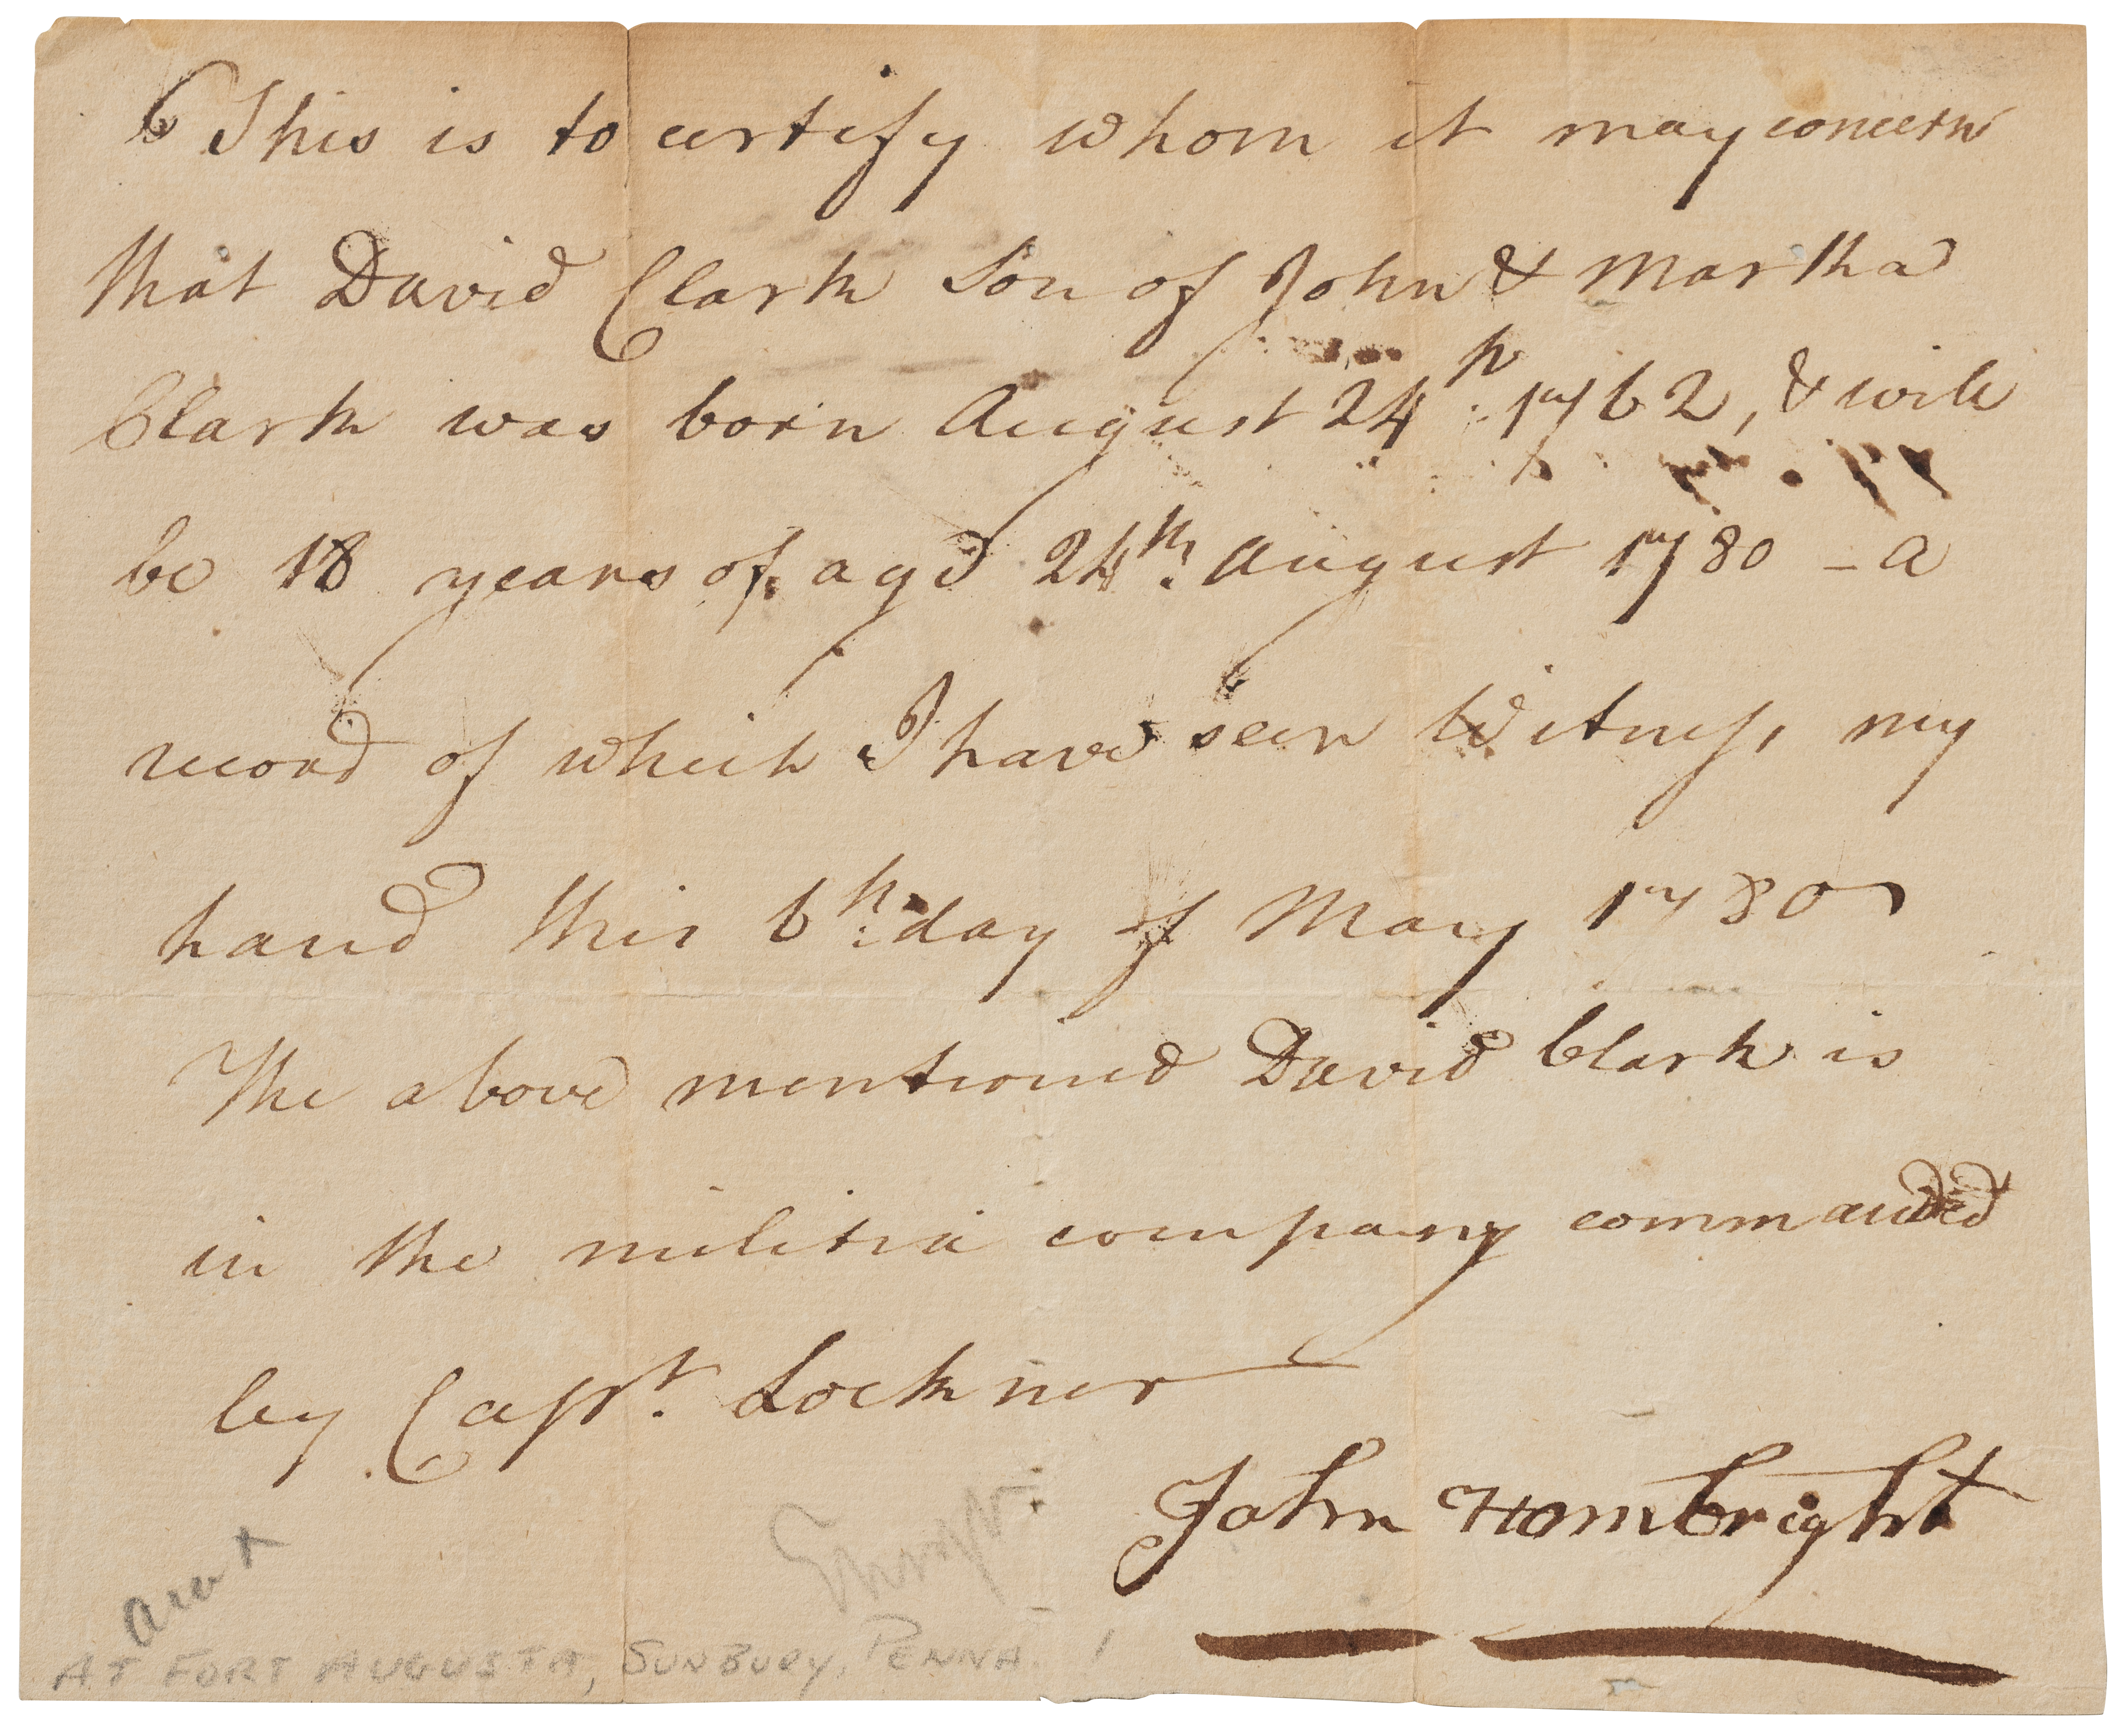 This is to certify whom it may concern
that David Clark Son of John & Martha
Clark was born August 24th: 1762, & will
be 18 years of age 24th: August 1780 – a
record of which I have seen Witness, my
hand this 6th: day of May 1780
The above mentioned David Clark is
in the militia company commanded
by Capt. Lockner
John Hambright
AT FORT AUGUSTA, SUNBURY, PENNA.